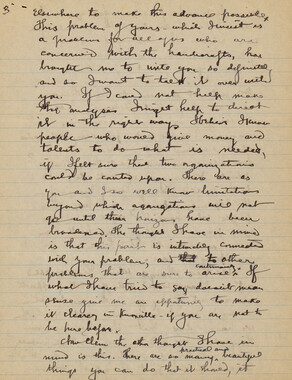 3
elsewhere to make this advance possible.
This problem of yours which I insist is
a problem for all of us who are
concerned with the handicrafts, has
brought me to write you so definitely
and so I want to talk it over with
you. If I can not help make
the analysis I might help to direct
it in the right way. I know
people who would give money and
talents to do what is needed,
if I felt sure these two organizations
could be counted upon. There are as
you and I so well know limitations
beyond which organizations will not
go until their horizons have been
broadened. The thought I have in mind
is that this is intimately connected
with your problem, and to other
problems that are sure to continually arise. If
what I have tried to say doesn't mean
sense give me an opportunity to make
it clearer in Knoxville if you are not to
be here before.
Now then the other thought I have in
mind is this. There are so many practical and beautiful
things you can do that if I had it